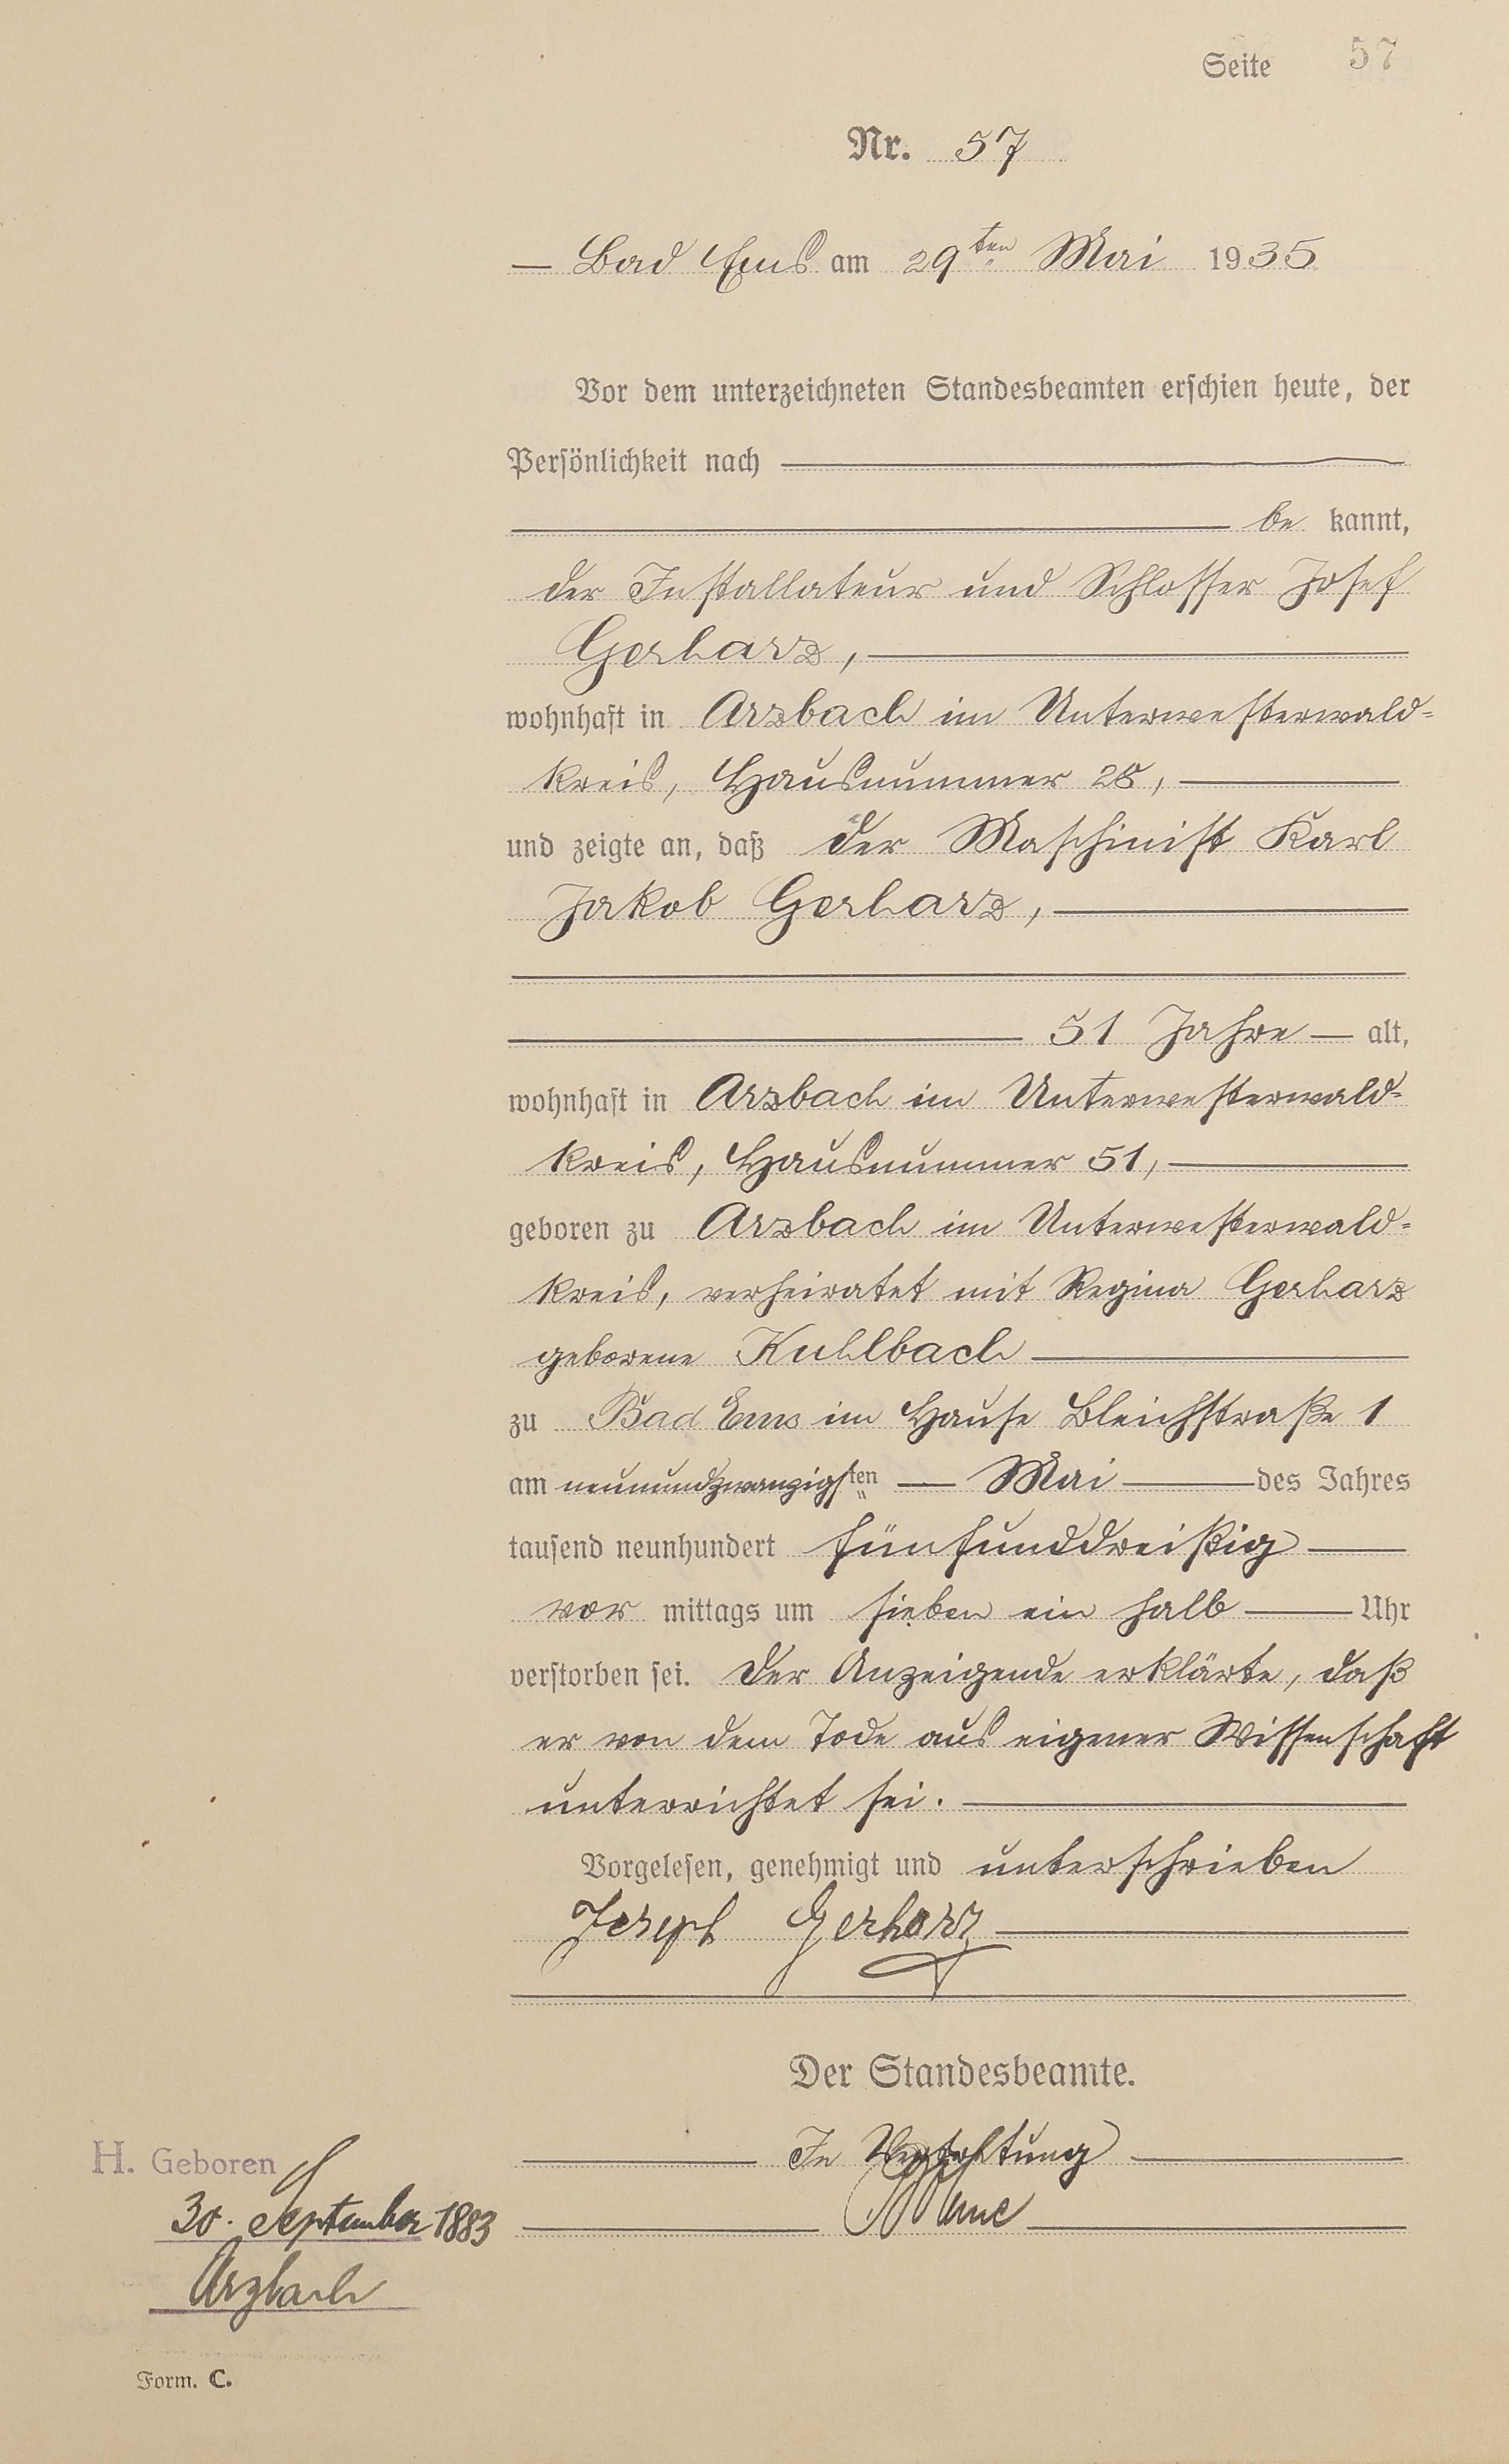 Seite 57
Nr. 57
Bad Ems am 29ten Mai 1935
Vor dem unterzeichneten Standesbeamten erschien heute, der
Persönlichkeit nach
be kannt,
der Installateur und Schlosser Josef
Gerharz,
wohnhaft in Arzbach im Unterwesterwald=
kreis, Hausnummer 28,
und zeigte an, daß der Maschinist Karl
Jakob Gerharz,
51 Jahre alt,
wohnhaft in Arzbach im Unterwesterwald=
kreis, Hausnummer 51,
geboren zu Arzbach im Unterwesterwald=
kreis, verheiratet mit Regina Gerharz
geborene Kuhlbach
zu Bad Ems im Hause Bleichstraße 1
am neunundzwanzigsten Mai des Jahres
tausend neunhundert fünfunddreißig
vor mittags um sieben ein halb Uhr
verstorben sei. Der Anzeigende erklärte, daß
er von dem Tode aus eigener Wissenschaft
unterrichtet sei.
Vorgelesen, genehmigt und unterschrieben
Joseph Gerharz
Der Standesbeamte.
In Vertretung
H. Geboren
30. September 1883
Arzbach
Form. C.